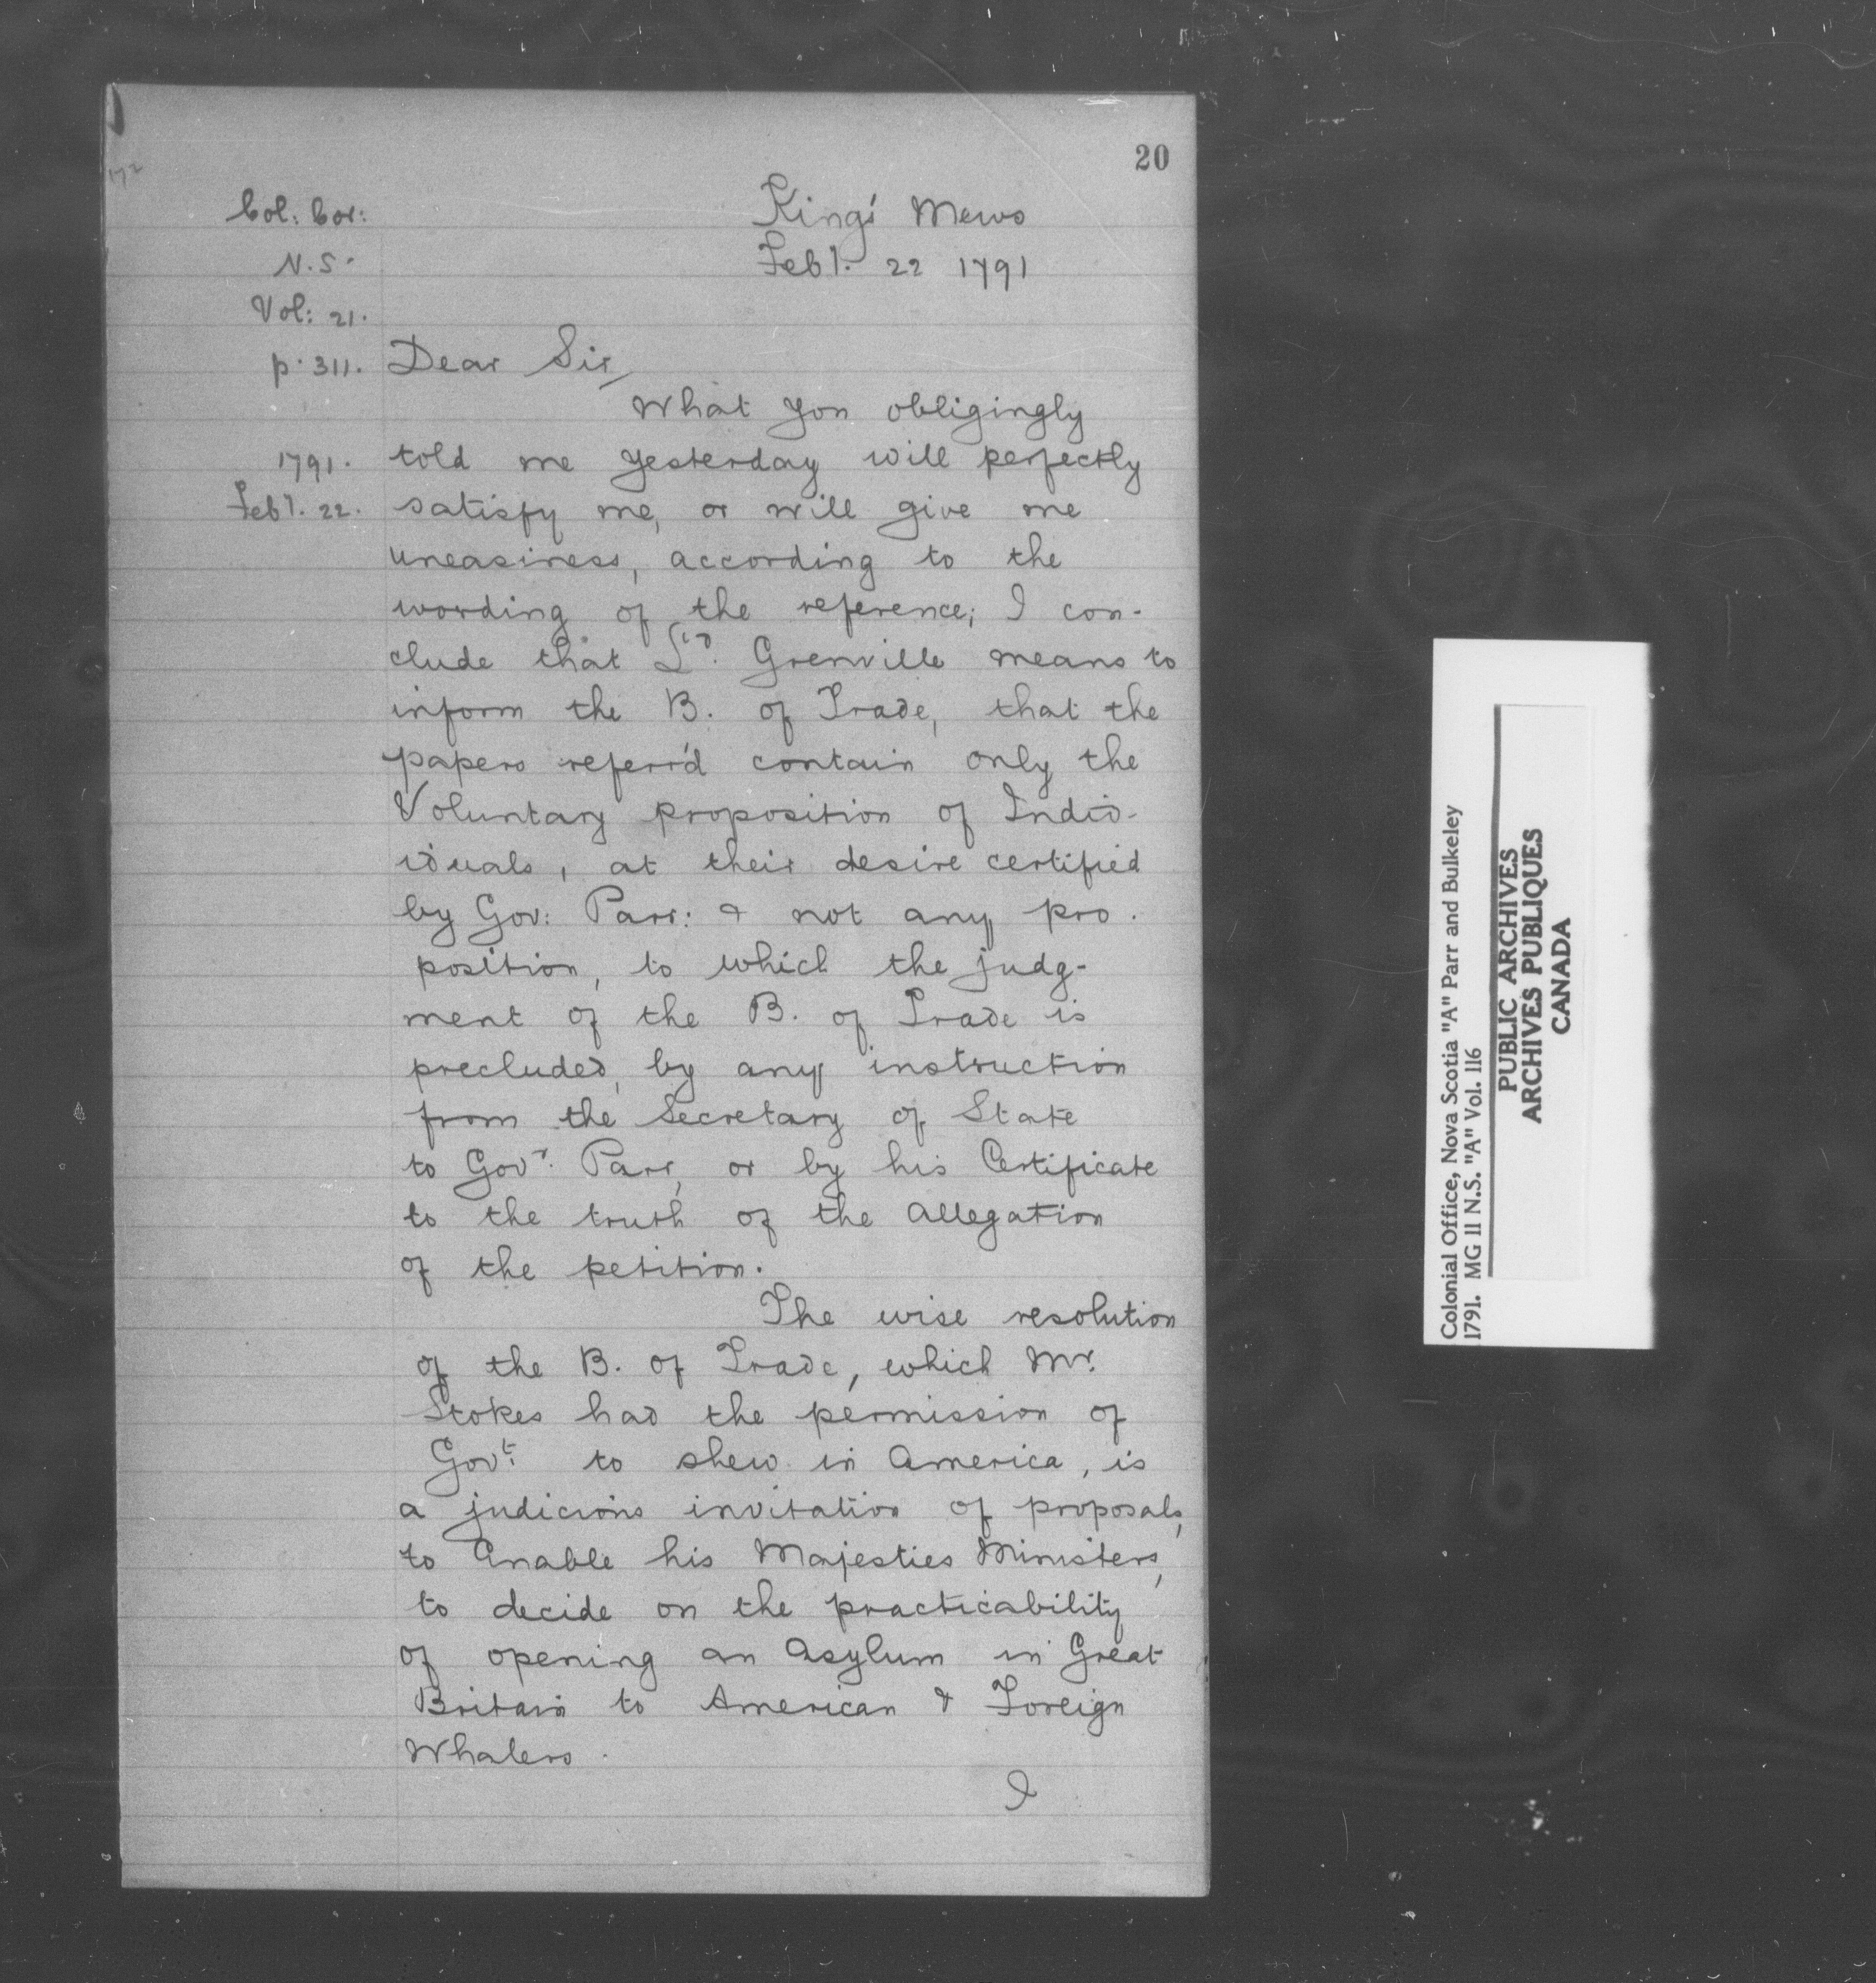 20
Col: Cor:
N.S.
Vol: 21.
p. 311.
1791.
Feby. 22.
King's Mews
Feby. 22 1791
Dear Sir,
What you obligingly
told me yesterday will perfectly
satisfy me, or will give me
uneasiness, according to the
wording of the reference; I con-
clude that Ld. Grenville means to
inform the B. of Trade, that the
papers referr'd contain only the
Voluntary proposition of Indiv-
iduals, at their desire certified
by Gov: Parr: & not any pro-
position, to which the judg-
ment of the B. of Trade is
precluded, by any instruction
from the Secretary of State
to Govr. Parr, or by his Certificate
to the truth of the allegation
of the petition.
The wise resolution
of the B. of Trade, which Mr.
Stokes had the permission of
Govt: to shew in America, is
a judicious invitation of proposals,
to Enable his Majesties Ministers,
to decide on the practicability
of opening an Asylum in Great
Britain to American & Foreign
Whalers.
I
Colonial Office, Nova Scotia "A" Parr and Bulkeley
1791. MG 11 N.S. "A" Vol. 116
PUBLIC ARCHIVES
ARCHIVES PUBLIQUES
CANADA